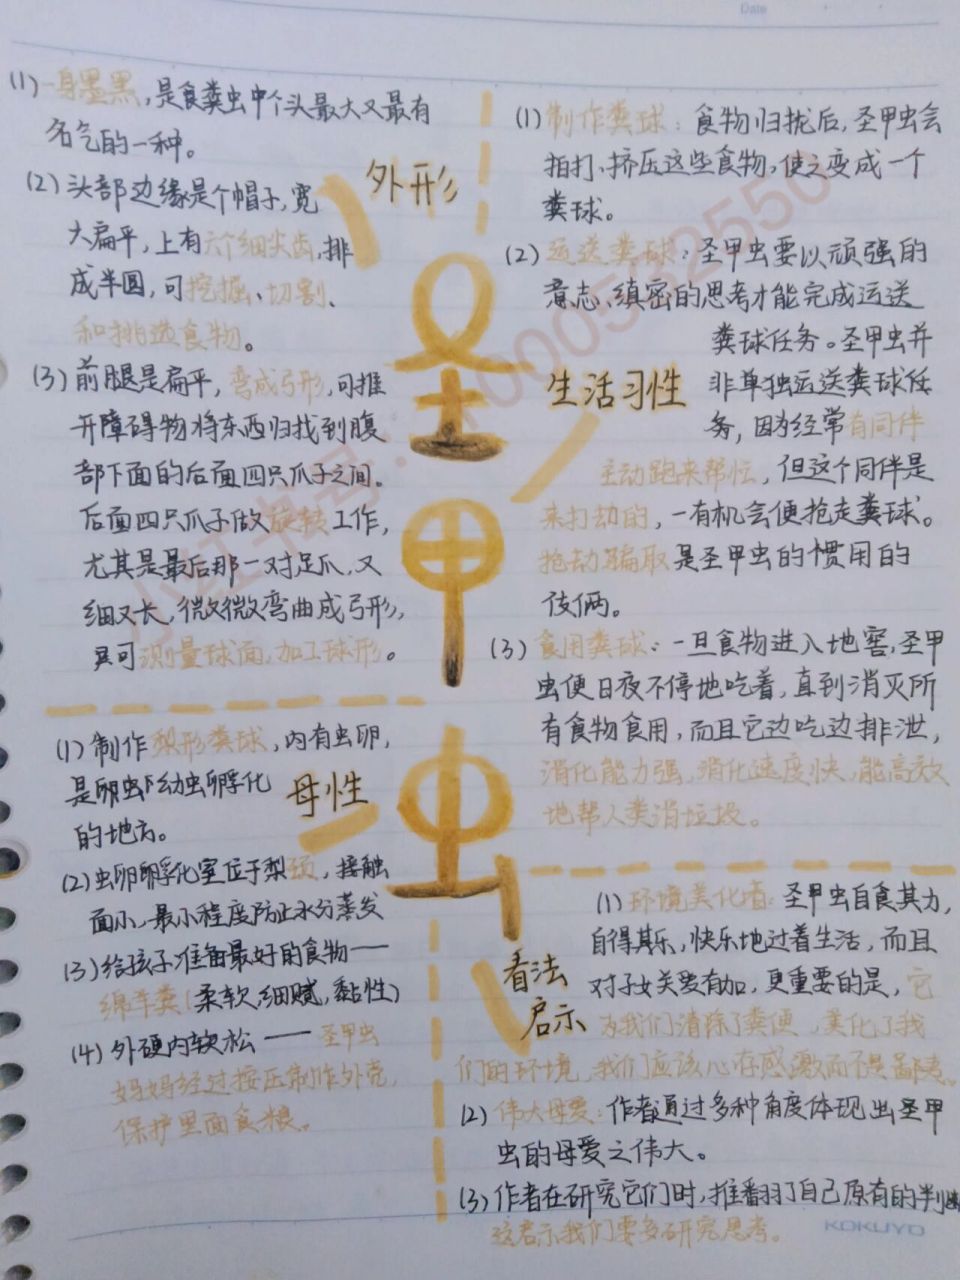 Date
(1)一身墨黑,是食粪虫中个头最大又最有
名气的一种。
(2)头部边缘是个帽子,宽
大扁平,上有六个细尖齿,排
成半圆,可挖掘、切割、
和挑选食物。
(3)前腿是扁平,弯成弓形,可推
开障碍物将东西归找到腹
部下面的后面四只爪子之间。
后面四只爪子做旋转工作,
尤其是最后那一对足爪,又
细又长,微微弯曲成弓形,
且可测量球面,加工球形。
外形
圣
甲
虫
(1)制作粪球:食物归拢后,圣甲虫会
拍打、挤压这些食物,使之变成一个
粪球。
(2)运送粪球:圣甲虫要以顽强的
意志、缜密的思考才能完成运送
粪球任务。圣甲虫并
非单独运送粪球任
务,因为经常有同伴
主动跑来帮忙,但这个同伴是
来打劫的,一有机会便抢走粪球。
抢劫骗取是圣甲虫的惯用的
伎俩。
(3)食用粪球:一旦食物进入地窖,圣甲
虫便日夜不停地吃着,直到消灭所
有食物食用,而且它边吃边排泄,
消化能力强,消化速度快,能高效
地帮人类消垃圾。
生活习性
(1)制作梨形粪球,内有虫卵,
是卵虫幼虫孵化
的地方。
(2)虫卵孵化室位于梨颈,接触
面小,最小程度防止水分蒸发
(3)给孩子准备最好的食物——
绵羊粪(柔软,细腻,黏性)
(4)外硬内软松——圣甲虫
妈妈经过按压制作外壳,
保护里面食粮。
母性
(1)环境美化者:圣甲虫自食其力,
自得其乐,快乐地过着生活,而且
对子女关爱有加,更重要的是,它
为我们清除了粪便,美化了我
们的环境,我们应该心存感激而不是鄙夷。
(2)伟大母爱:作者通过多种角度体现出圣甲
虫的母爱之伟大。
(3)作者在研究它们时,推翻了自己原有的判断
这启示我们要多研究思考。
看法
启示
KOKUYO